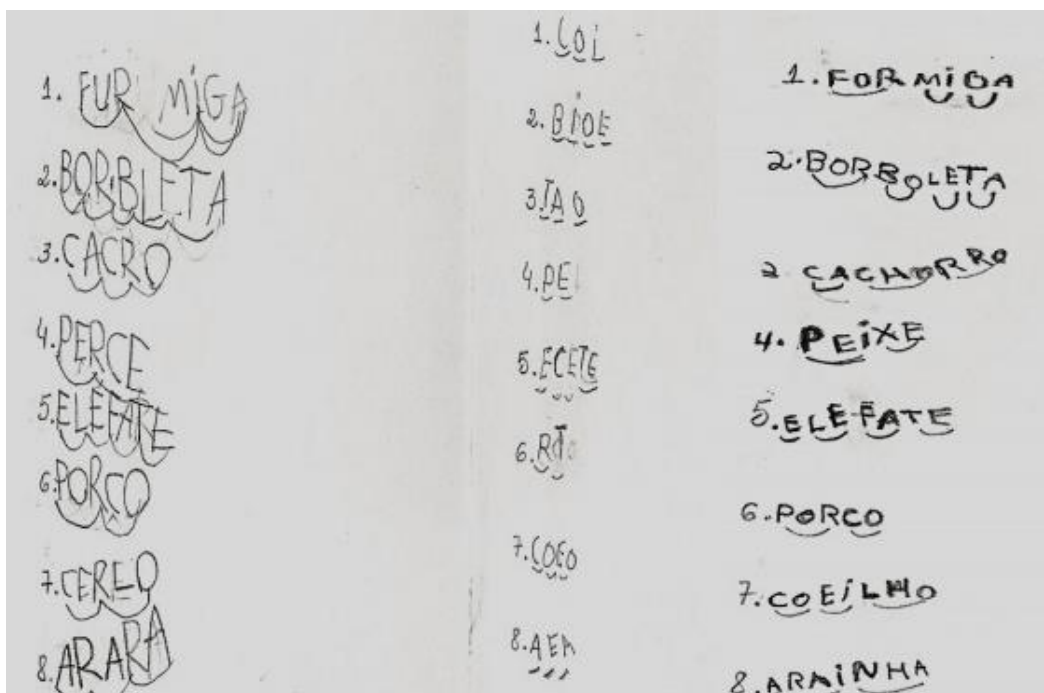 1. FUR MIGA
2. BORBLETA
3. CACRO
4. PERCE
5. ELEFATE
6. PORCO
7. CERELO
8. ARARA
1. COI
2. BIOE
3. IAO
4. PEI
5. ECETE
6.
7. COEO
8. AEA
1. FORMIGA
2. BORBOLETA
2 CACHORRO
4. PEIXE
5. ELEFATE
6. PORCO
7. COEILHO
8. ARAINHA